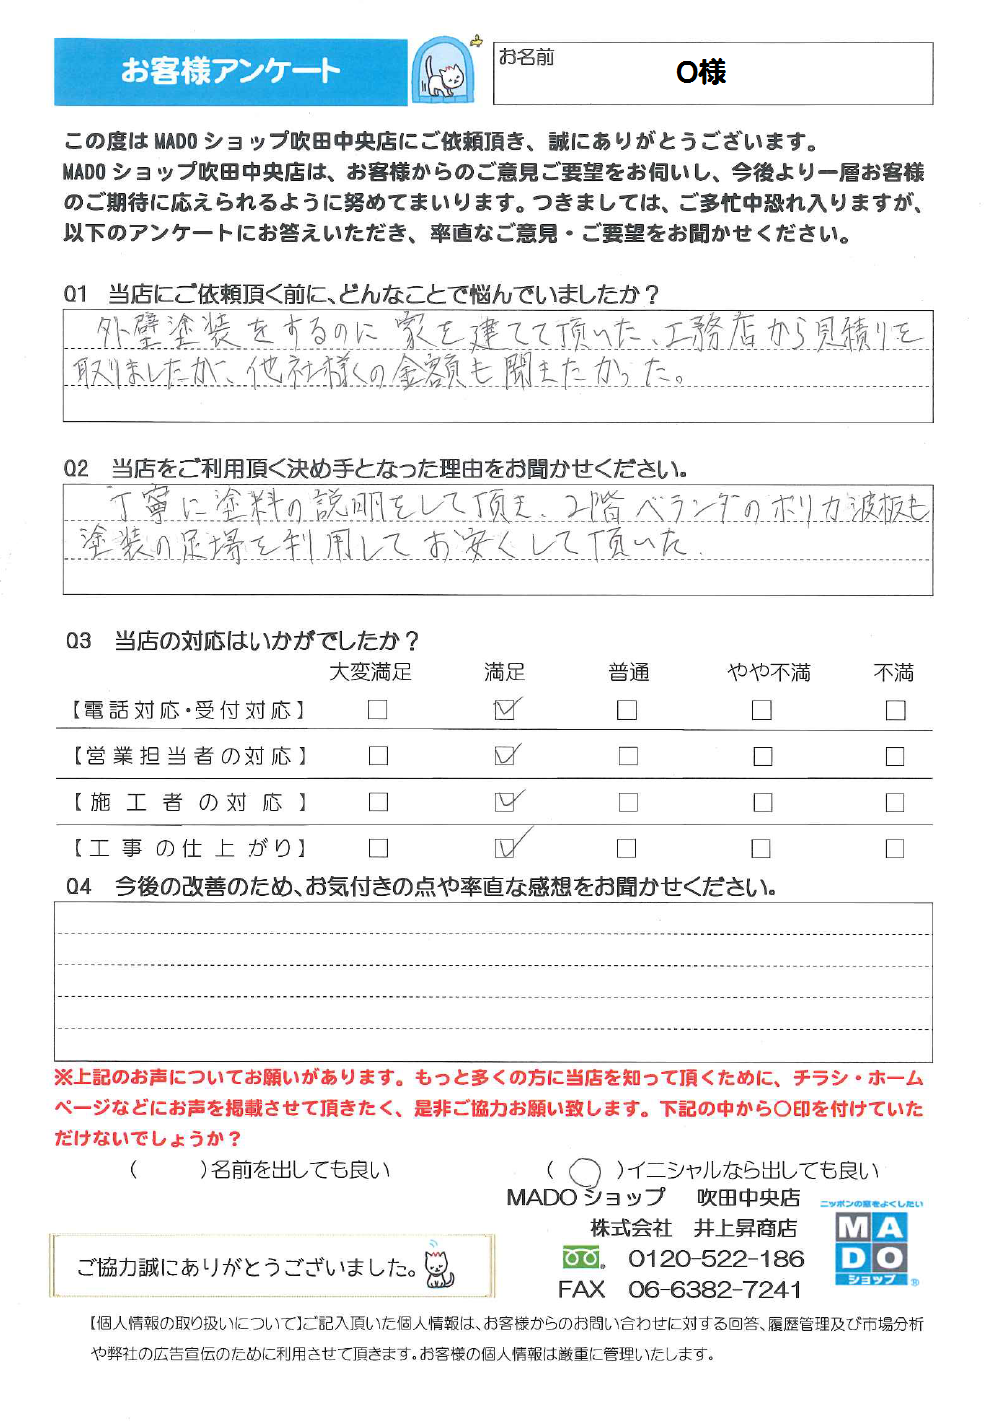 お客様アンケート
お名前
O様
この度は MADO ショップ吹田中央店にご依頼頂き、誠にありがとうございます。
MADO ショップ吹田中央店は、お客様からのご意見ご要望をお伺いし、今後より一層お客様
のご期待に応えられるように努めてまいります。つきましては、ご多忙中恐れ入りますが、
以下のアンケートにお答えいただき、率直なご意見・ご要望をお聞かせください。
Q1 当店にご依頼頂く前に、どんなことで悩んでいましたか？
外壁塗装をするのに家を建てて頂いた、工務店から見積りを
取りましたが、他社様の金額も聞きたかった。
Q2 当店をご利用頂く決め手となった理由をお聞かせください。
丁寧に塗料の説明をして頂き、2階ベランダのポリカ波板も
塗装の足場を利用してお安くして頂いた.
Q3 当店の対応はいかがでしたか？
大変満足 満足 普通 やや不満 不満
【電話対応・受付対応】
【営業担当者の対応】
【施工者の対応】
【工事の仕上がり】
Q4 今後の改善のため、お気付きの点や率直な感想をお聞かせください。
※上記のお声についてお願いがあります。もっと多くの方に当店を知って頂くために、チラシ・ホーム
ページなどにお声を掲載させて頂きたく、是非ご協力お願い致します。下記の中から〇印を付けていた
だけないでしょうか？
（　　）名前を出しても良い （ 〇 ）イニシャルなら出しても良い
MADO ショップ 吹田中央店
ニッポンの窓をよくしたい
株式会社 井上昇商店
MADO
ショップ®
0120-522-186
ご協力誠にありがとうございました。
FAX 06-6382-7241
【個人情報の取り扱いについて】ご記入頂いた個人情報は、お客様からのお問い合わせに対する回答、履歴管理及び市場分析
や弊社の広告宣伝のために利用させて頂きます。お客様の個人情報は厳重に管理いたします。